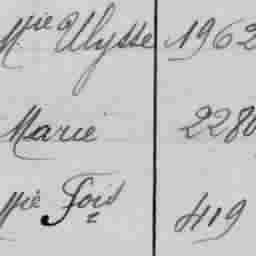 Mie Ulysse 1962
Marie 2280
Mie Fois 419